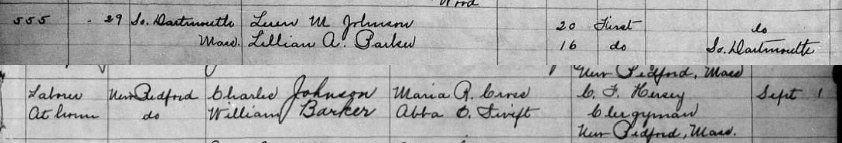 555 " 29 So. Dartmouth Luen M. Johnson 20 First do
Mass. Lillian A. Parker 16 do So. Dartmouth
New Bedford, Mass
Laborer New Bedford Charles Johnson Maria R. C. F. Hersey Sept 1
At home do William Barker Abba C. Swift Clergyman
New Bedford, Mass.